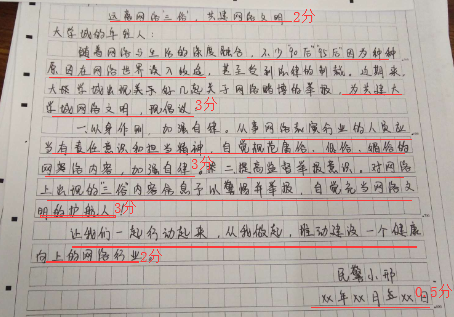 远离网络"三俗"，共建网络文明 2分
大学城的年轻人：
随着网络与生活的深度融合，不少"90后""95后"因为种种
原因在网络世界误入歧途，甚至受到法律的制裁。近期来，
大学城出现关于好几起关于网络赌博的举报，为共建大
学城网络文明，现倡议 3分
一.以身作则，加强自律。从事网络表演行业的人员应
当有责任意识和担当精神，自觉规范庸俗、低俗、媚俗的
网络内容，加强自律。3分 二提高监督举报意识。对网络
上出现的"三俗"内容信息予以警惕并举报，自觉充当网络文
明的护航人 3分
让我们一起行动起来，从我做起，推动建设一个健康
向上的网络行业。2分
民警小邢
xx年xx月xx日 0.5分